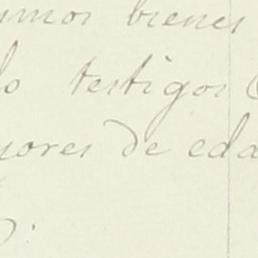 umos bienes
lo testigos
yores de eda